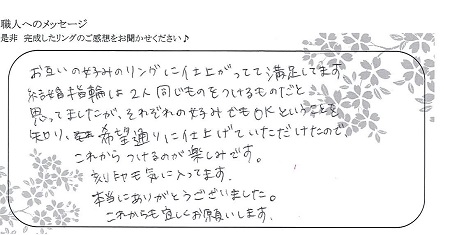 職人へのメッセージ
是非 完成したリングのご感想をお聞かせください♪
お互いの好みのリングに仕上がってて満足してます。
結婚指輪は2人同じものをつけるものだと
思ってましたが、それぞれの好みでもOKということを
知り、希望通りに仕上げていただけたので
これからつけるのが楽しみです。
刻印も気に入ってます。
本当にありがとうございました。
これからも宜しくお願いします。